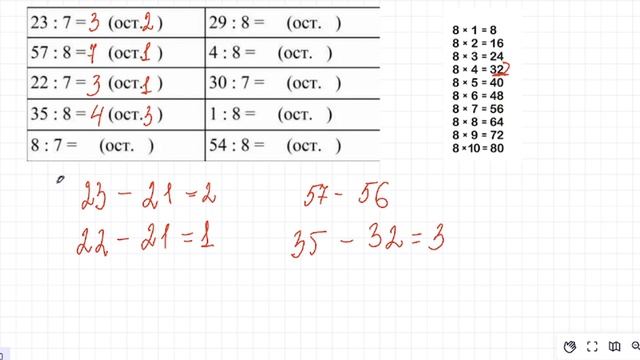 23 : 7 = 3 (ост. 2 ) 29 : 8 = (ост. )
57 : 8 = 7 (ост. 1 ) 4 : 8 = (ост. )
22 : 7 = 3 (ост. 1 ) 30 : 7 = (ост. )
35 : 8 = 4 (ост. 3 ) 1 : 8 = (ост. )
8 : 7 = (ост. ) 54 : 8 = (ост. )
8 × 1 = 8
8 × 2 = 16
8 × 3 = 24
8 × 4 = 32
8 × 5 = 40
8 × 6 = 48
8 × 7 = 56
8 × 8 = 64
8 × 9 = 72
8 × 10 = 80
23 - 21 = 2 57 - 56
22 - 21 = 1 35 - 32 = 3